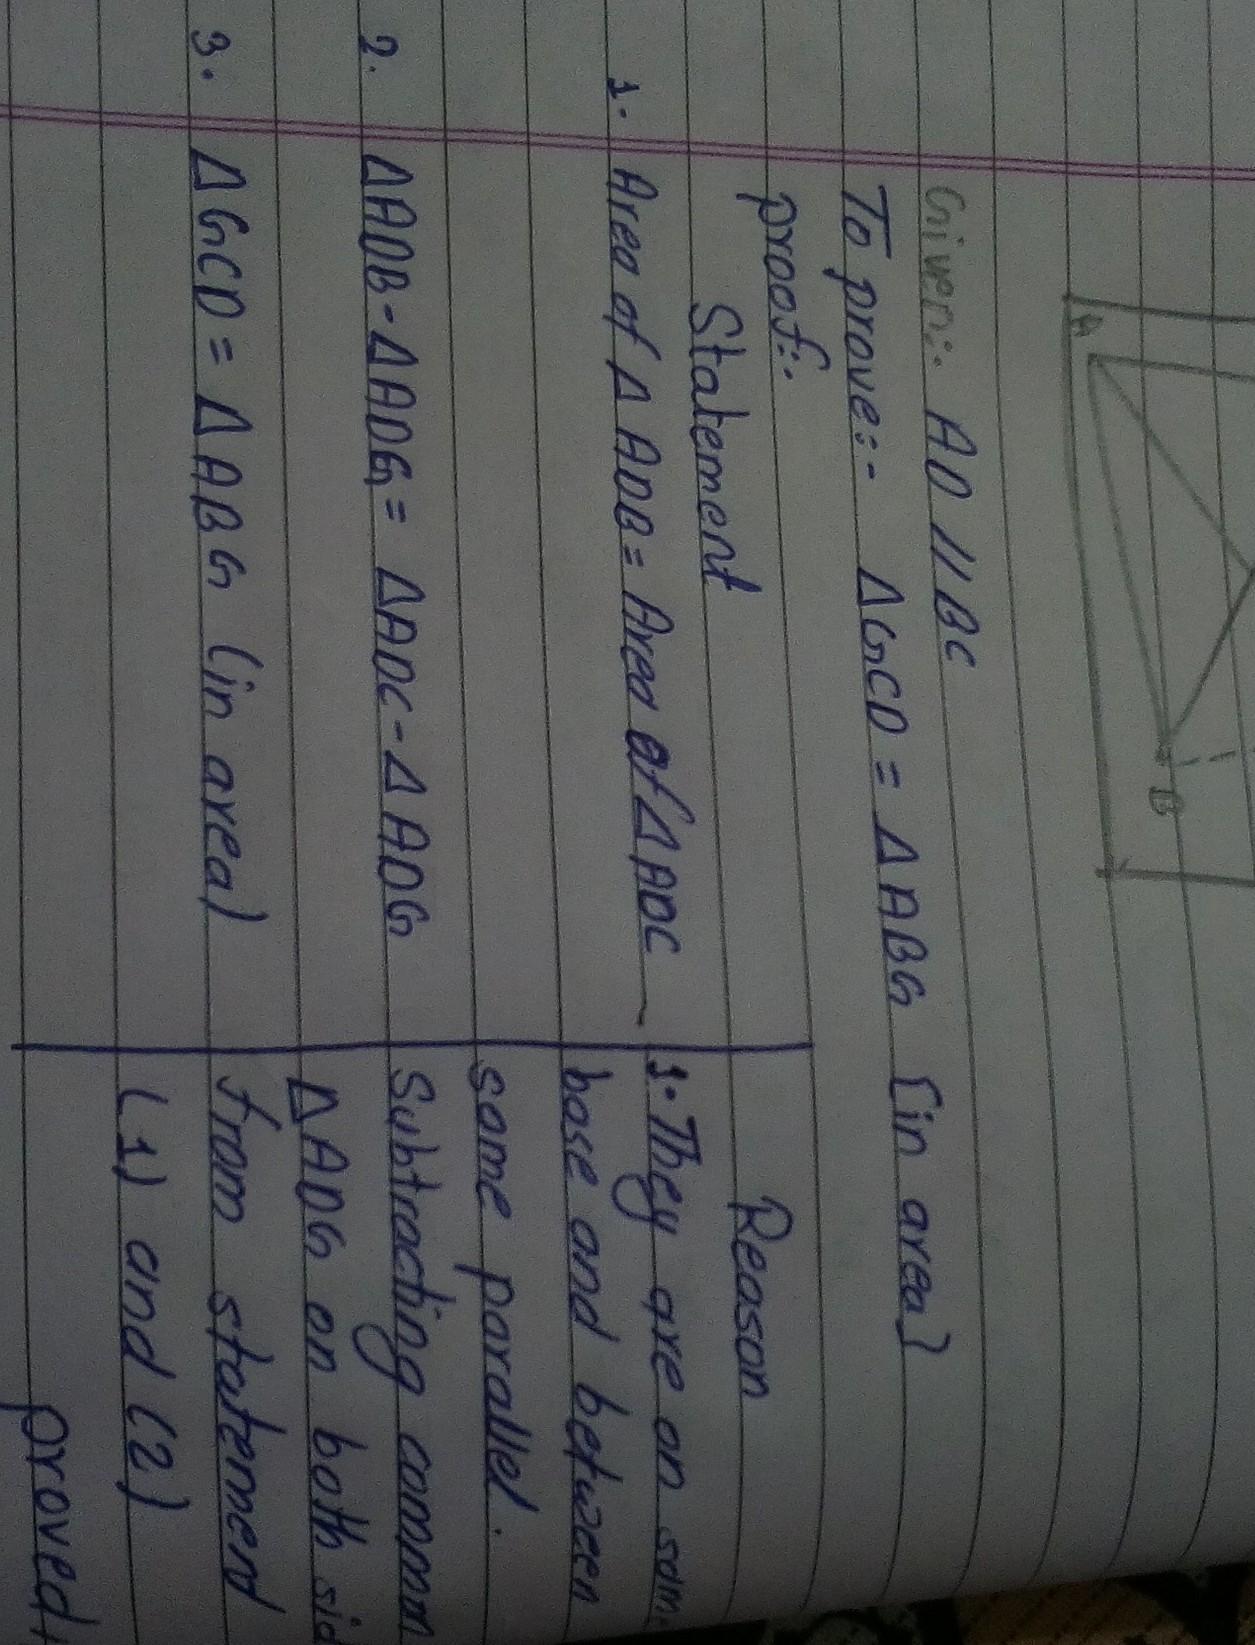 A
B
Given:- AD // BC
To prove:- Δ GCD = Δ ABG [in area]
proof:-
Statement Reason
1. Area of Δ ADB = Area of Δ ADC 1. They are on sam
base and between
same parallel.
2. ΔADB - ΔADG = ΔADC - Δ ADG Subtracting common
Δ ADG on both sid
3. Δ GCD = Δ ABG (in area) from statement
(1) and (2)
proved